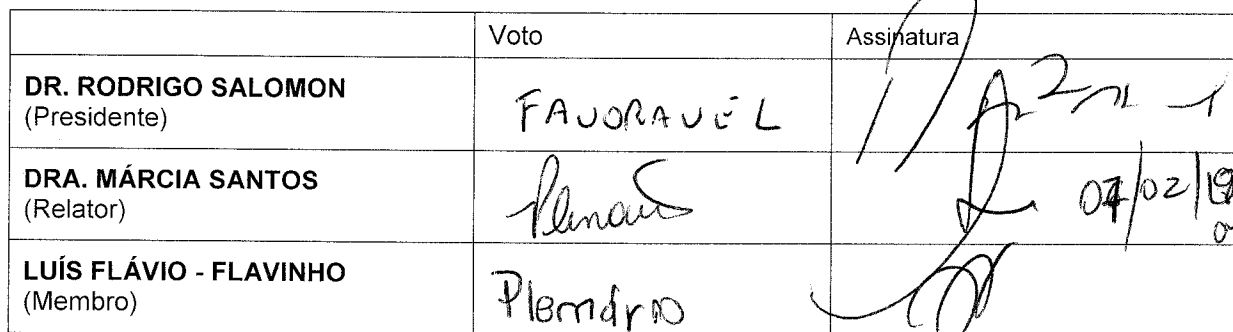 Voto Assinatura
DR. RODRIGO SALOMON
(Presidente)
FAVORAVEL
DRA. MÁRCIA SANTOS
(Relator)
Plenario
07/02/19
LUÍS FLÁVIO - FLAVINHO
(Membro)
Plenário